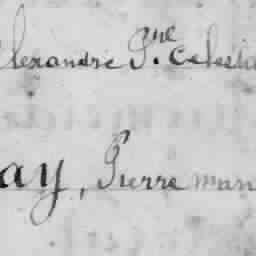 Alexandre P.ne Celesti
ay, Pierre man